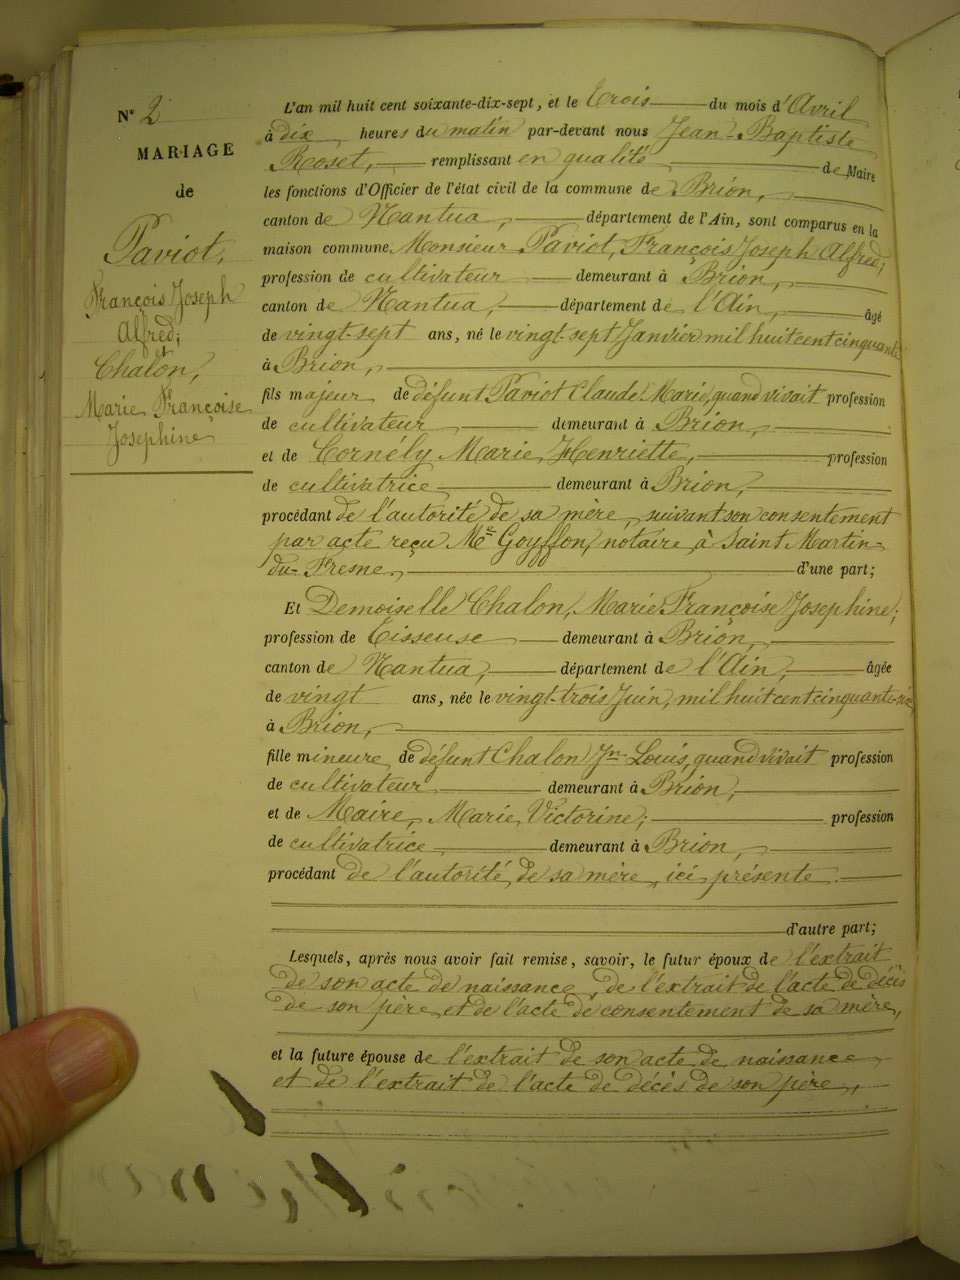 N° 2
MARIAGE
de
Paviot,
François Joseph
Alfred;
et
Chalon,
Marie Françoise
Josephine
L'an mil huit cent soixante-dix-sept, et le Trois du mois d'Avril
à dix heures du matin par-devant nous Jean-Baptiste
Roset, remplissant en qualité de Maire
les fonctions d'Officier de l'état civil de la commune de Brion,
canton de Nantua, département de l'Ain, sont comparus en la
maison commune Monsieur Paviot, François Joseph Alfred;
profession de cultivateur demeurant à Brion,
canton de Nantua, département de l'Ain, âgé
de vingt-sept ans, né le vingt-sept Janvier mil huit cent cinquante
à Brion,
fils majeur de défunt Paviot Claude Marie, quand vivait profession
de cultivateur demeurant à Brion,
et de Cornély Marie Henriette, profession
de cultivatrice demeurant à Brion,
procédant de l'autorité de sa mère, suivant son consentement
par acte reçu Me Goyffon, notaire à Saint Martin-
du-Fresne, d'une part;
Et Demoiselle Chalon, Marie Françoise Josephine;
profession de Tisseuse demeurant à Brion,
canton de Nantua, département de l'Ain, âgée
de vingt ans, née le vingt-trois Juin, mil huit cent cinquante-six,
à Brion,
fille mineure de défunt Chalon Jn-Louis, quand vivait profession
de cultivateur demeurant à Brion,
et de Maire, Marie Victorine; profession
de cultivatrice demeurant à Brion,
procédant de l'autorité de sa mère, ici présente.
d'autre part;
Lesquels, après nous avoir fait remise, savoir, le futur époux de l'extrait
de son acte de naissance, de l'extrait de l'acte de décès
de son père, et de l'acte de consentement de sa mère,
et la future épouse de l'extrait de son acte de naissance
et de l'extrait de l'acte de décès de son père,